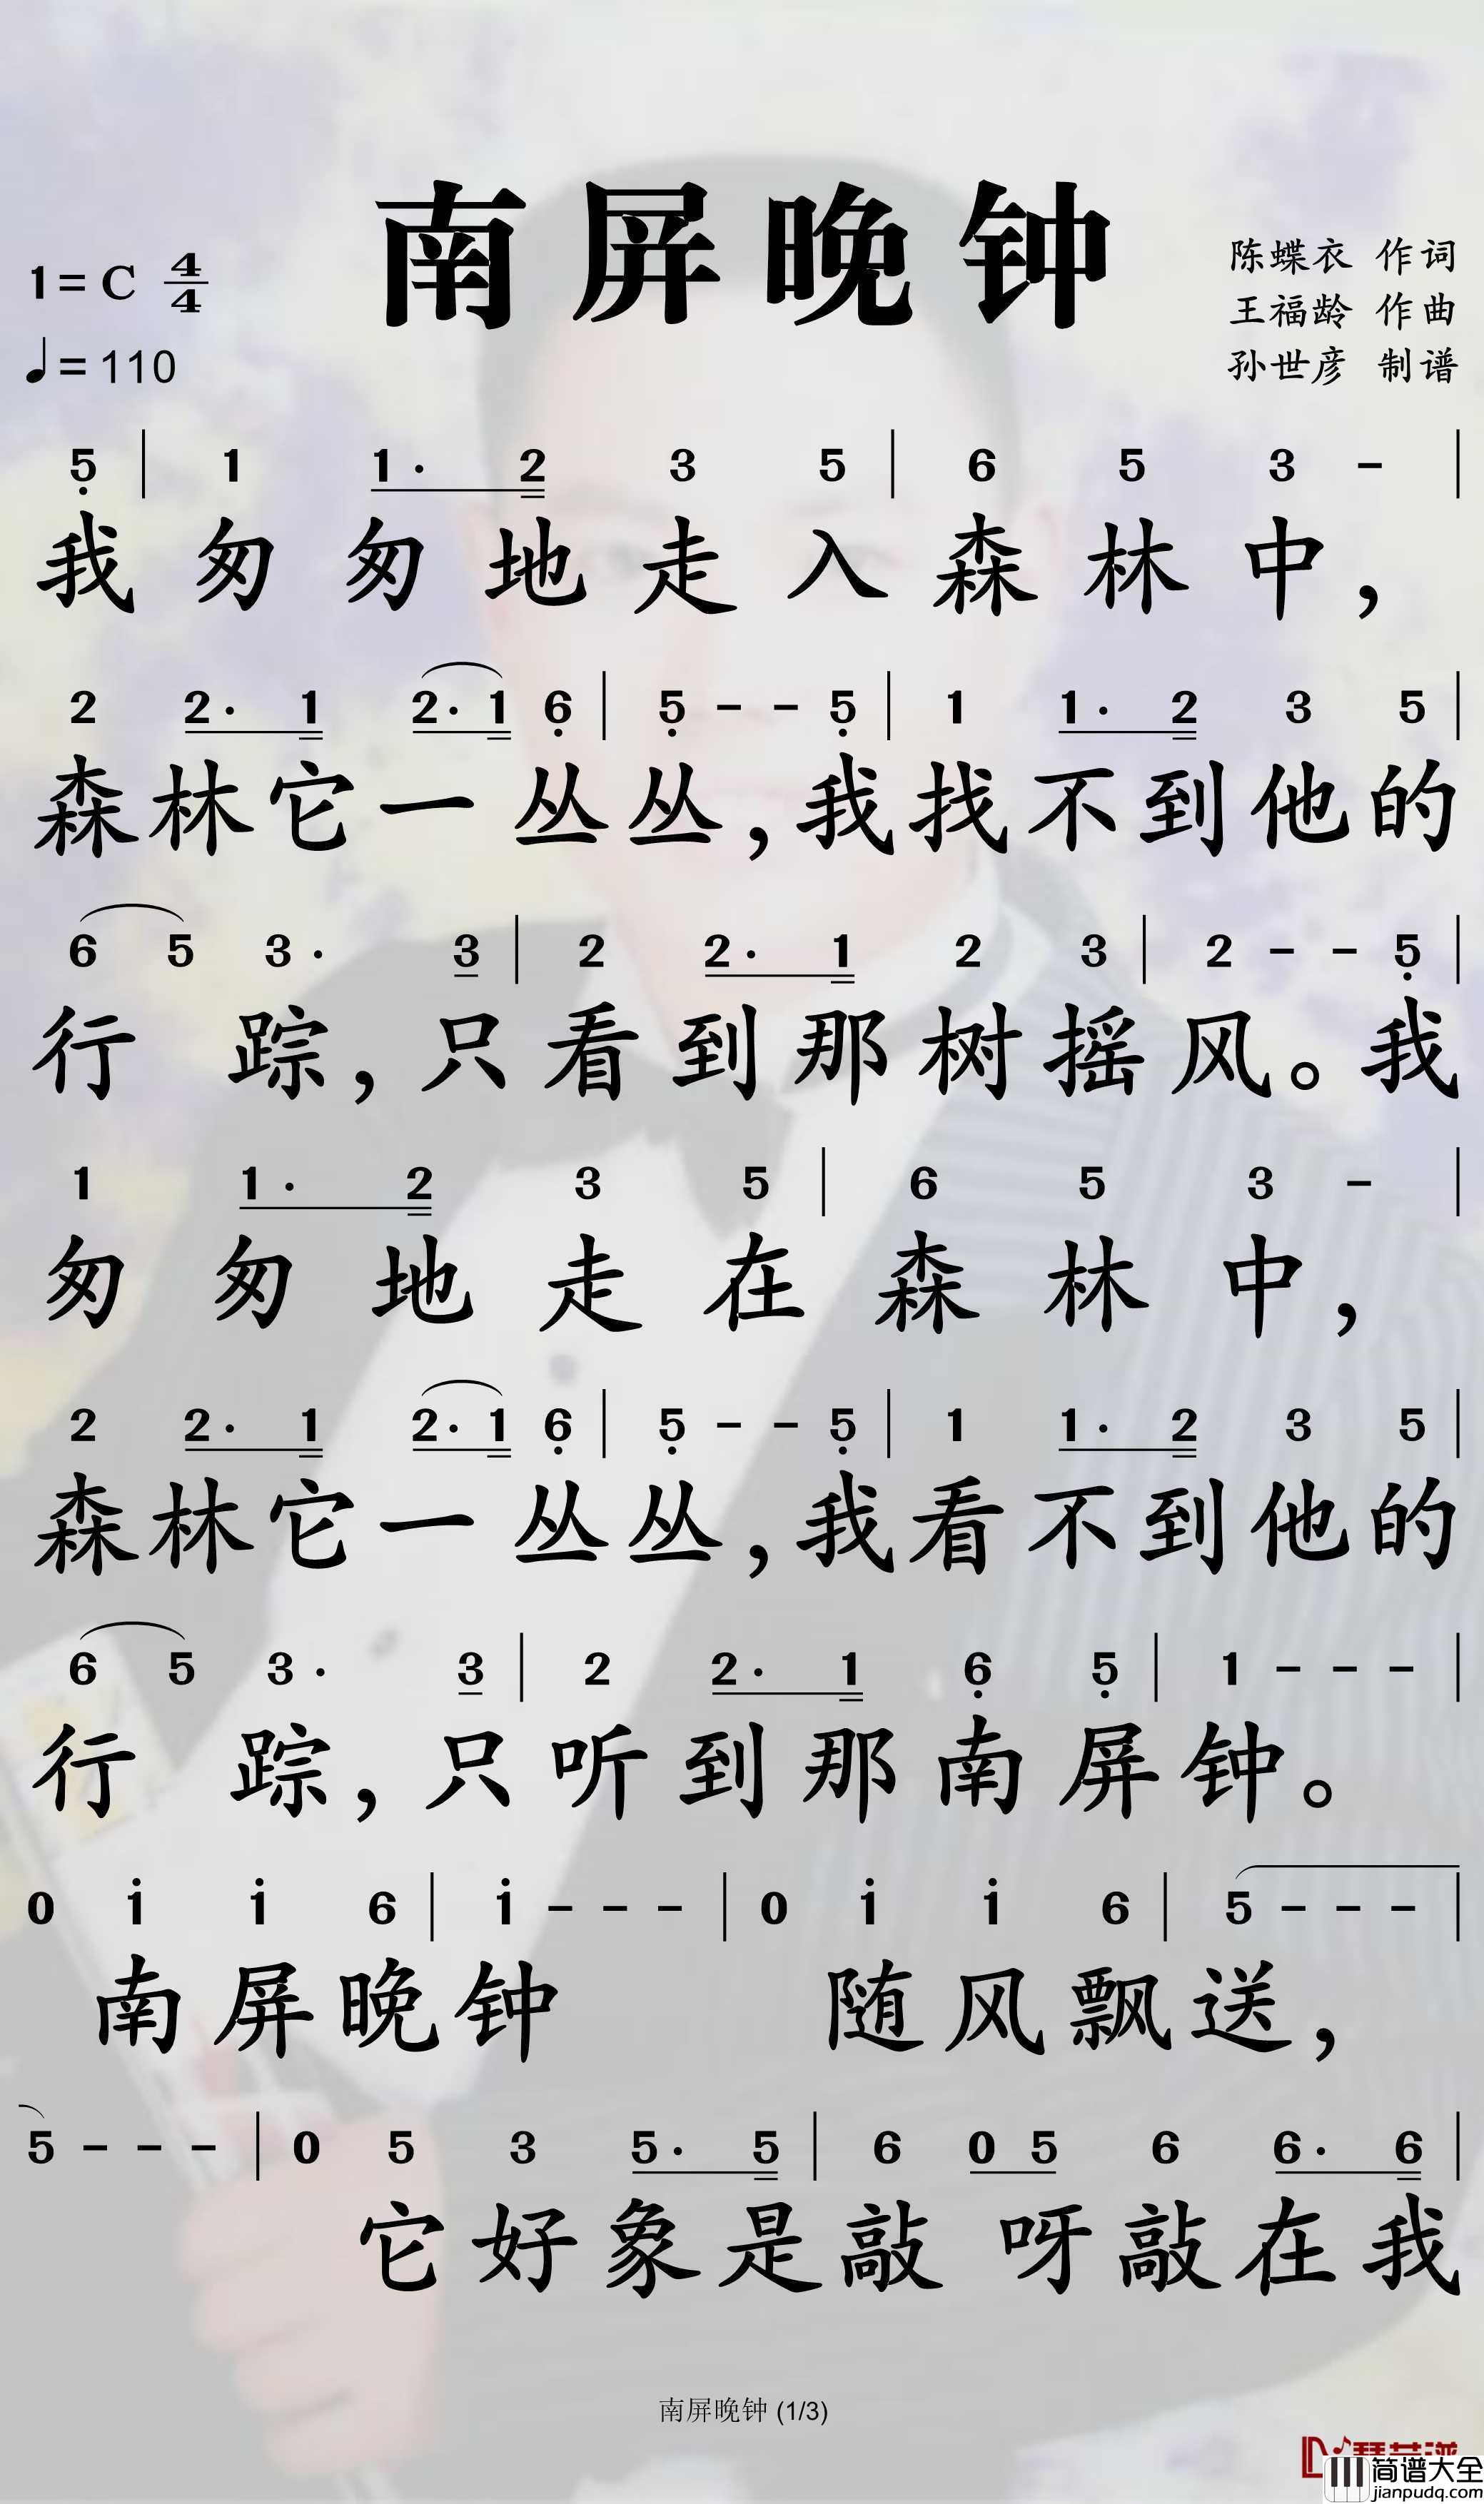 南屏晚钟
1=C 4/4
♩=110
陈蝶衣 作词
王福龄 作曲
孙世彦 制谱
5̣ | 1 1· 2 3 5 | 6 5 3 - |
我匆匆地走入森林中，
2 2· 1 2· 1 6̣ | 5̣ - - 5̣ | 1 1· 2 3 5 |
森林它一丛丛，我找不到他的
6 5 3· 3 | 2 2· 1 2 3 | 2 - - 5̣ |
行踪，只看到那树摇风。我
1 1· 2 3 5 | 6 5 3 - |
匆匆地走在森林中，
2 2· 1 2· 1 6̣ | 5̣ - - 5̣ | 1 1· 2 3 5 |
森林它一丛丛，我看不到他的
6 5 3· 3 | 2 2· 1 6̣ 5̣ | 1 - - - |
行踪，只听到那南屏钟。
0 1̇ 1̇ 6 | 1̇ - - - | 0 1̇ 1̇ 6 | 5 - - - |
南屏晚钟 随风飘送，
5 - - - | 0 5 3 5· 5 | 6 0 5 6 6· 6 |
它好象是敲呀敲在我
南屏晚钟 (1/3)
简谱大全
jianpudq.com